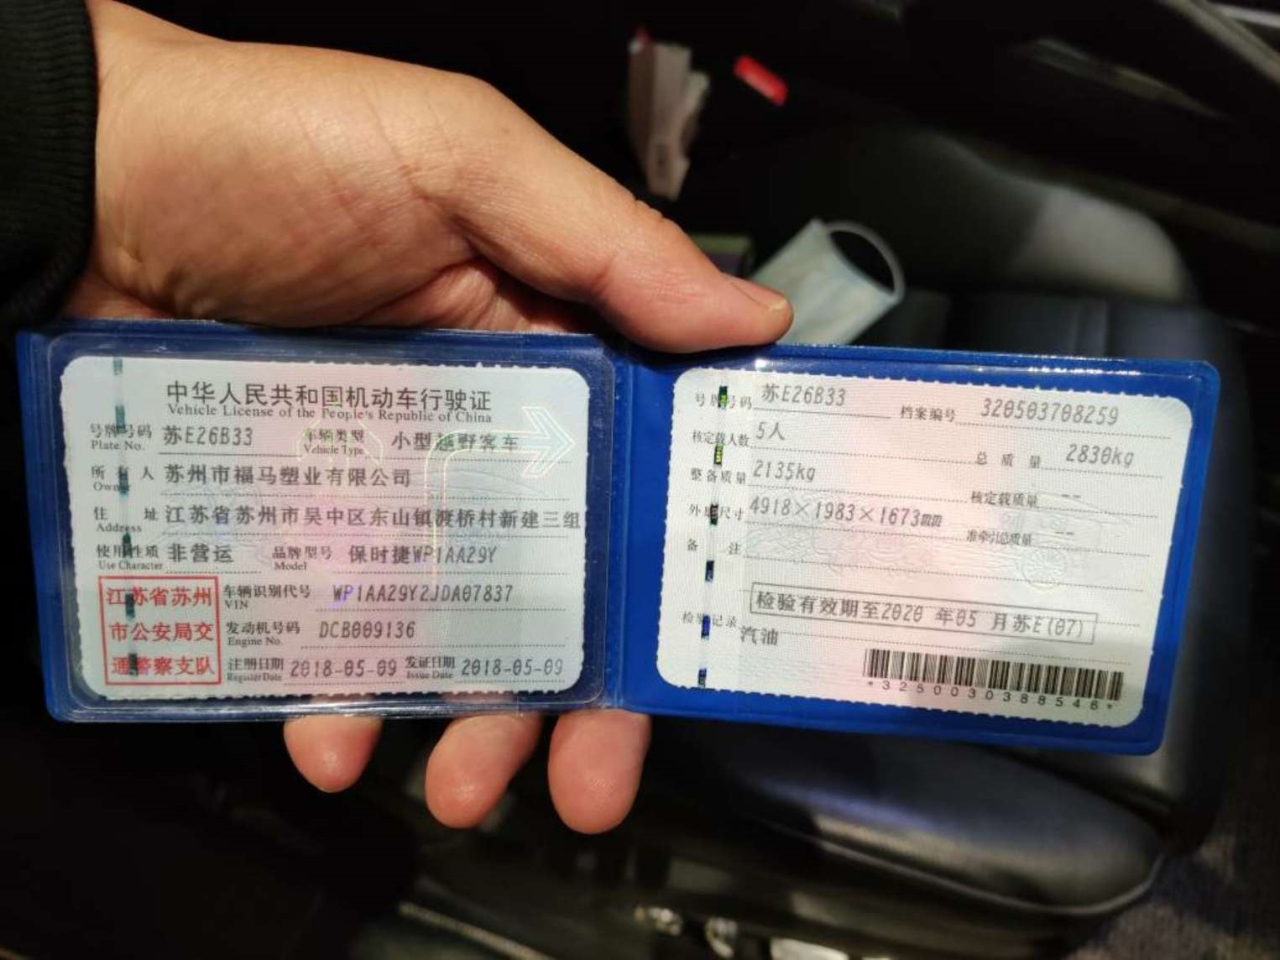 中华人民共和国机动车行驶证
Vehicle License of the People's Republic of China
号牌号码 苏E26B33 车辆类型 小型越野客车
Plate No. Vehicle Type
所有人 苏州市福马塑业有限公司
Owner
住址 江苏省苏州市吴中区东山镇渡桥村新建三组
Address
使用性质 非营运 品牌型号 保时捷WP1AA29Y
Use Character Model
江苏省苏州
市公安局交
通警察支队
车辆识别代号 WP1AA29Y2JDA07837
VIN
发动机号码 DCB009136
Engine No.
注册日期 2018-05-09 发证日期 2018-05-09
Register Date Issue Date
号牌号码 苏E26B33 档案编号 320503708259
核定载人数 5人 总质量 2830kg
整备质量 2135kg 核定载质量 --
外廓尺寸 4918×1983×1673mm 准牵引总质量 --
备注
检验有效期至2020 年05 月苏E(07)
检验记录 汽油
*3250030388546*